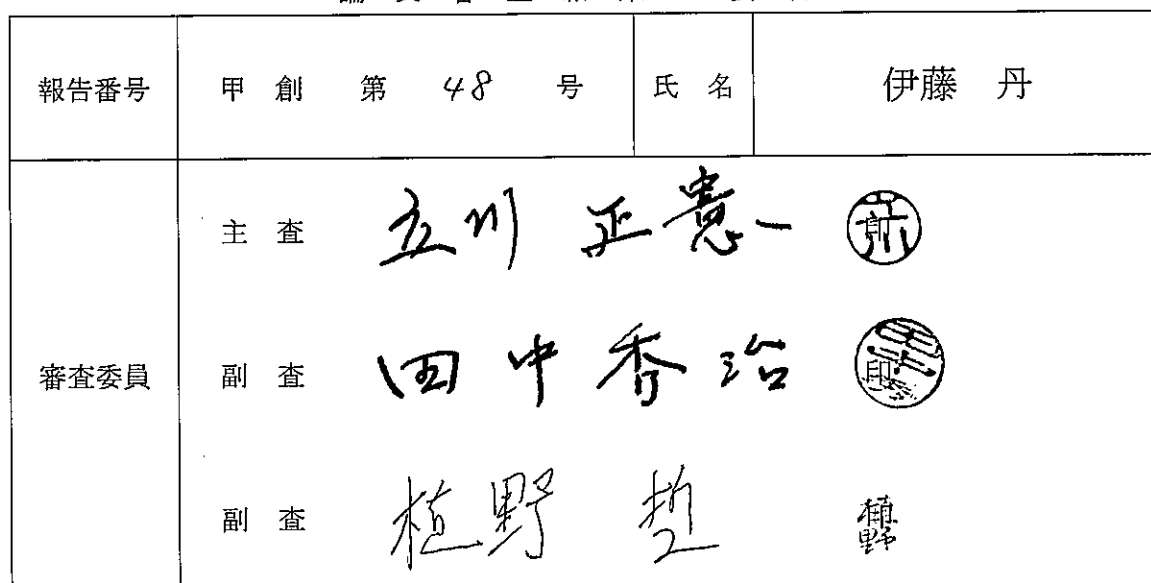 報告番号 甲 創 第 48 号 氏 名 伊藤 丹
審査委員
主 査 立川 正憲
副 査 田中香治
副 査 植野 哲 植野